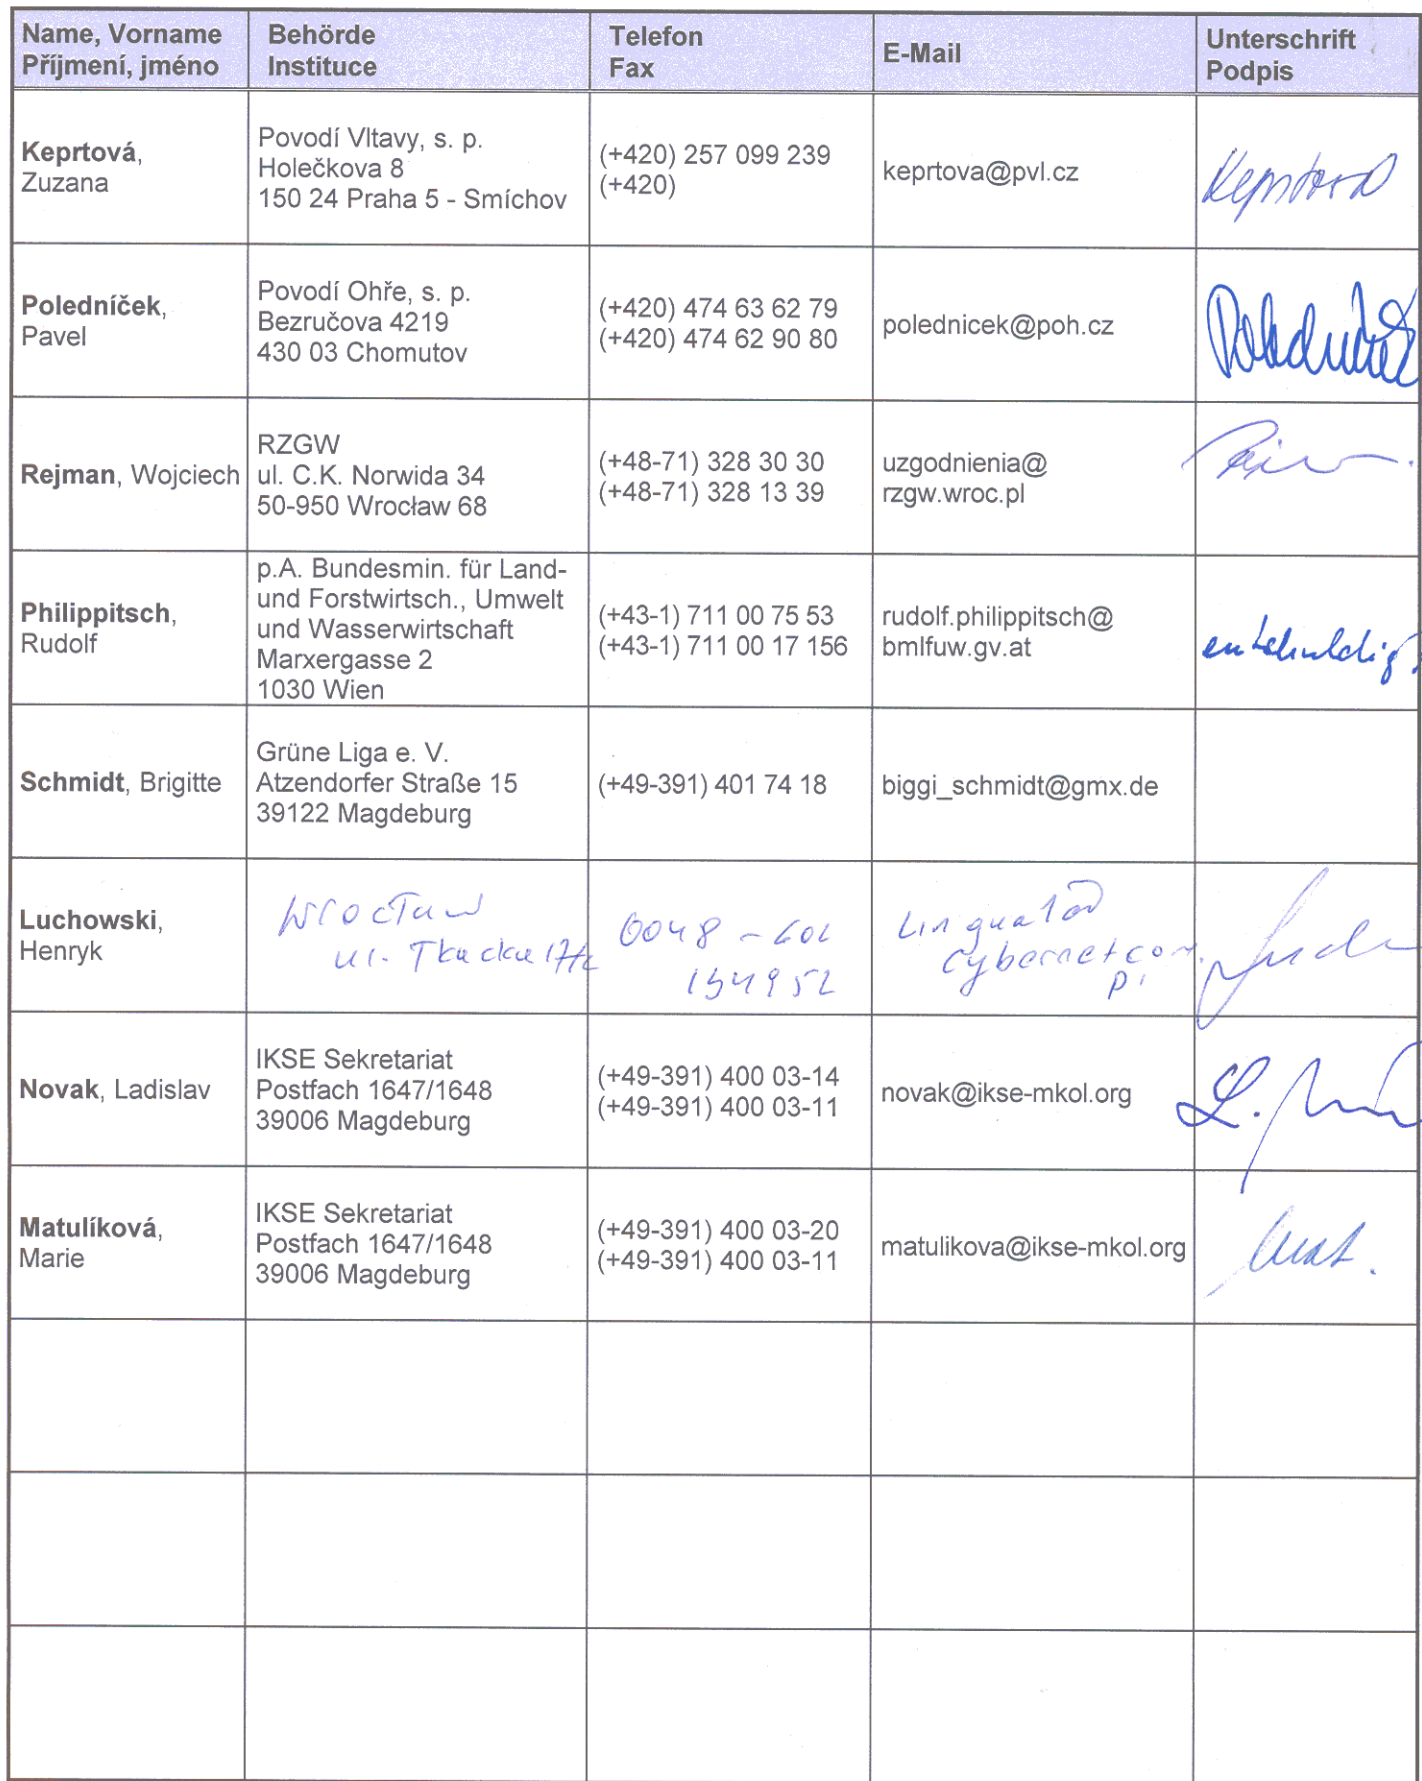 Name, Vorname
Příjmení, jméno
Behörde
Instituce
Telefon
Fax
E-Mail
Unterschrift
Podpis
Keprtová,
Zuzana
Povodí Vltavy, s. p.
Holečkova 8
150 24 Praha 5 - Smíchov
(+420) 257 099 239
(+420)
keprtova@pvl.cz
Keprtová
Poledníček,
Pavel
Povodí Ohře, s. p.
Bezručova 4219
430 03 Chomutov
(+420) 474 63 62 79
(+420) 474 62 90 80
polednicek@poh.cz
Poledníček
Rejman, Wojciech
RZGW
ul. C.K. Norwida 34
50-950 Wrocław 68
(+48-71) 328 30 30
(+48-71) 328 13 39
uzgodnienia@
rzgw.wroc.pl
Philippitsch,
Rudolf
p.A. Bundesmin. für Land-
und Forstwirtsch., Umwelt
und Wasserwirtschaft
Marxergasse 2
1030 Wien
(+43-1) 711 00 75 53
(+43-1) 711 00 17 156
rudolf.philippitsch@
bmlfuw.gv.at
entschuldigt
Schmidt, Brigitte
Grüne Liga e. V.
Atzendorfer Straße 15
39122 Magdeburg
(+49-391) 401 74 18
biggi_schmidt@gmx.de
Luchowski,
Henryk
Wrocław
ul. Tkacka
0048 - 601
cybernet.com.
pl
Novak, Ladislav
IKSE Sekretariat
Postfach 1647/1648
39006 Magdeburg
(+49-391) 400 03-14
(+49-391) 400 03-11
novak@ikse-mkol.org
L.
Matulíková,
Marie
IKSE Sekretariat
Postfach 1647/1648
39006 Magdeburg
(+49-391) 400 03-20
(+49-391) 400 03-11
matulikova@ikse-mkol.org
Mat.